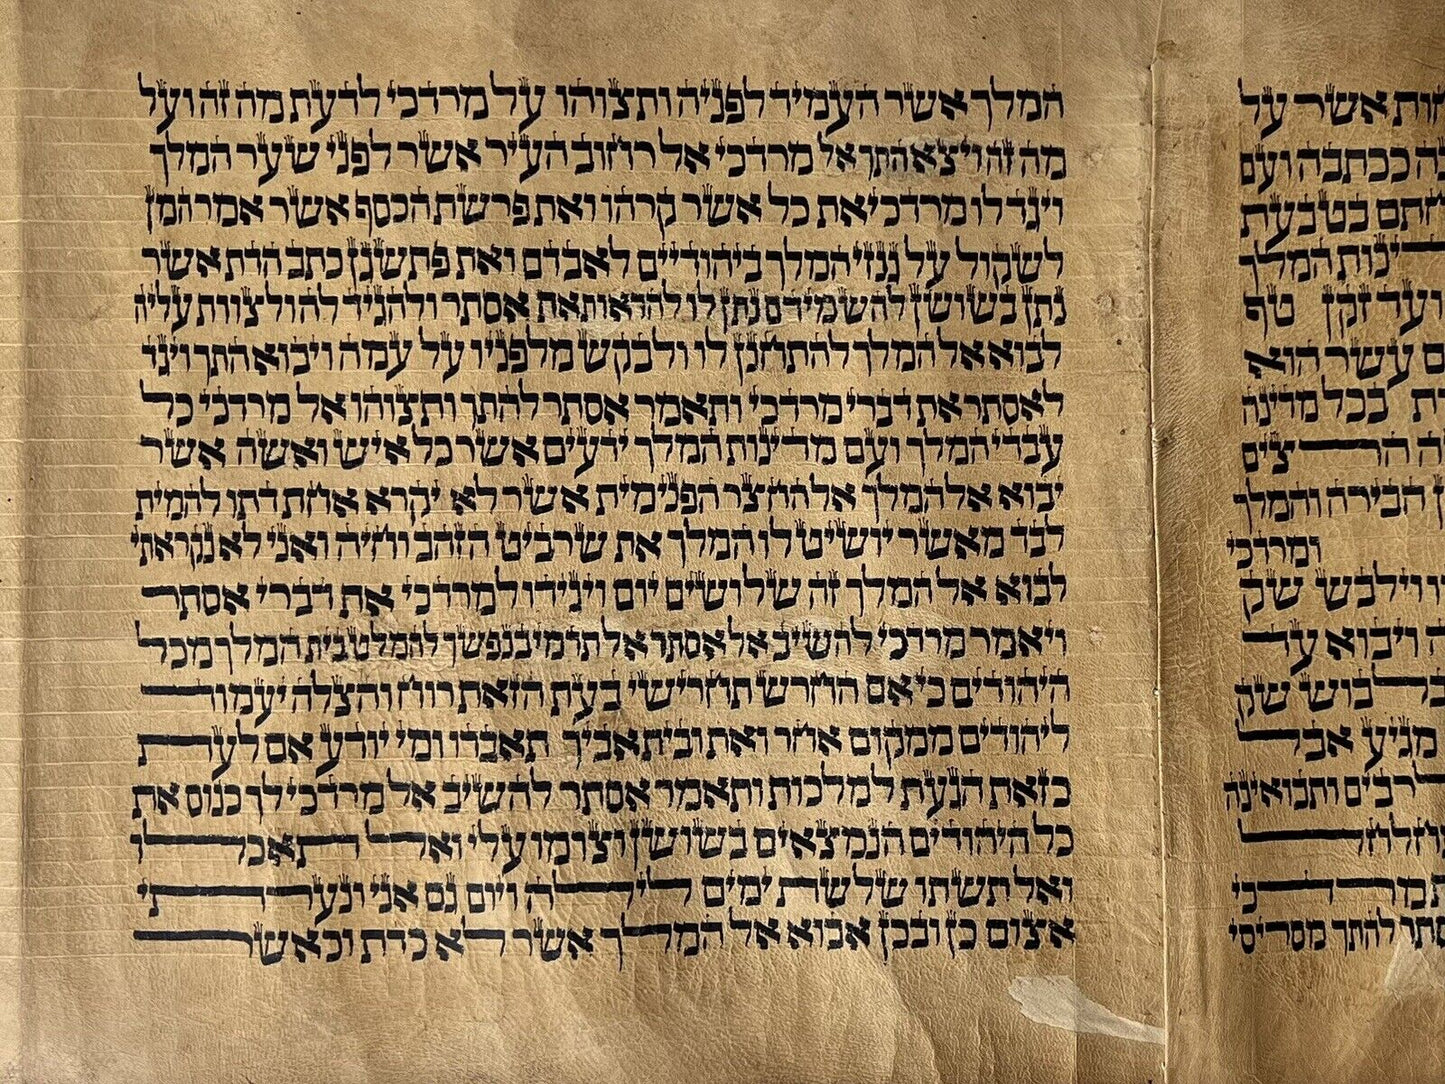 אשר על
ככתבה ועם
בטבעת
המלך
ועד זקן טף
עשר הוא
בכל מדינה
הרצים
הבירה והמלך
ומרדכי
וילבש שק
ויבוא עד
שק
מגיע אבל
ותבואינה
מרדכי
להתך מסריסי
המלך אשר העמיד לפניה ותצוהו על מרדכי לדעת מה זה ועל
מה זה ויצא התך אל מרדכי אל רחוב העיר אשר לפני שער המלך
ויגד לו מרדכי את כל אשר קרהו ואת פרשת הכסף אשר אמר המן
לשקול על גנזי המלך ביהודיים לאבדם ואת פתשגן כתב הדת אשר
נתן בשושן להשמידם נתן לו להראות את אסתר ולהגיד לה ולצוות עליה
לבוא אל המלך להתחנן לו ולבקש מלפניו על עמה ויבוא התך ויגד
לאסתר את דברי מרדכי ותאמר אסתר להתך ותצוהו אל מרדכי כל
עבדי המלך ועם מדינות המלך ידעים אשר כל איש ואשה אשר
יבוא אל המלך אל החצר הפנימית אשר לא יקרא אחת דתו להמית
לבד מאשר יושיט לו המלך את שרביט הזהב וחיה ואני לא נקראתי
לבוא אל המלך זה שלושים יום ויגידו למרדכי את דברי אסתר
ויאמר מרדכי להשיב אל אסתר אל תדמי בנפשך להמלט בית המלך מכל
היהודים כי אם החרש תחרישי בעת הזאת רווח והצלה יעמוד
ליהודים ממקום אחר ואת ובית אביך תאבדו ומי יודע אם לעת
כזאת הגעת למלכות ותאמר אסתר להשיב אל מרדכי לך כנוס את
כל היהודים הנמצאים בשושן וצומו עלי ואל תאכלו
ואל תשתו שלשת ימים לילה ויום גם אני ונערתי
אצום כן ובכן אבוא אל המלך אשר לא כדת וכאשר